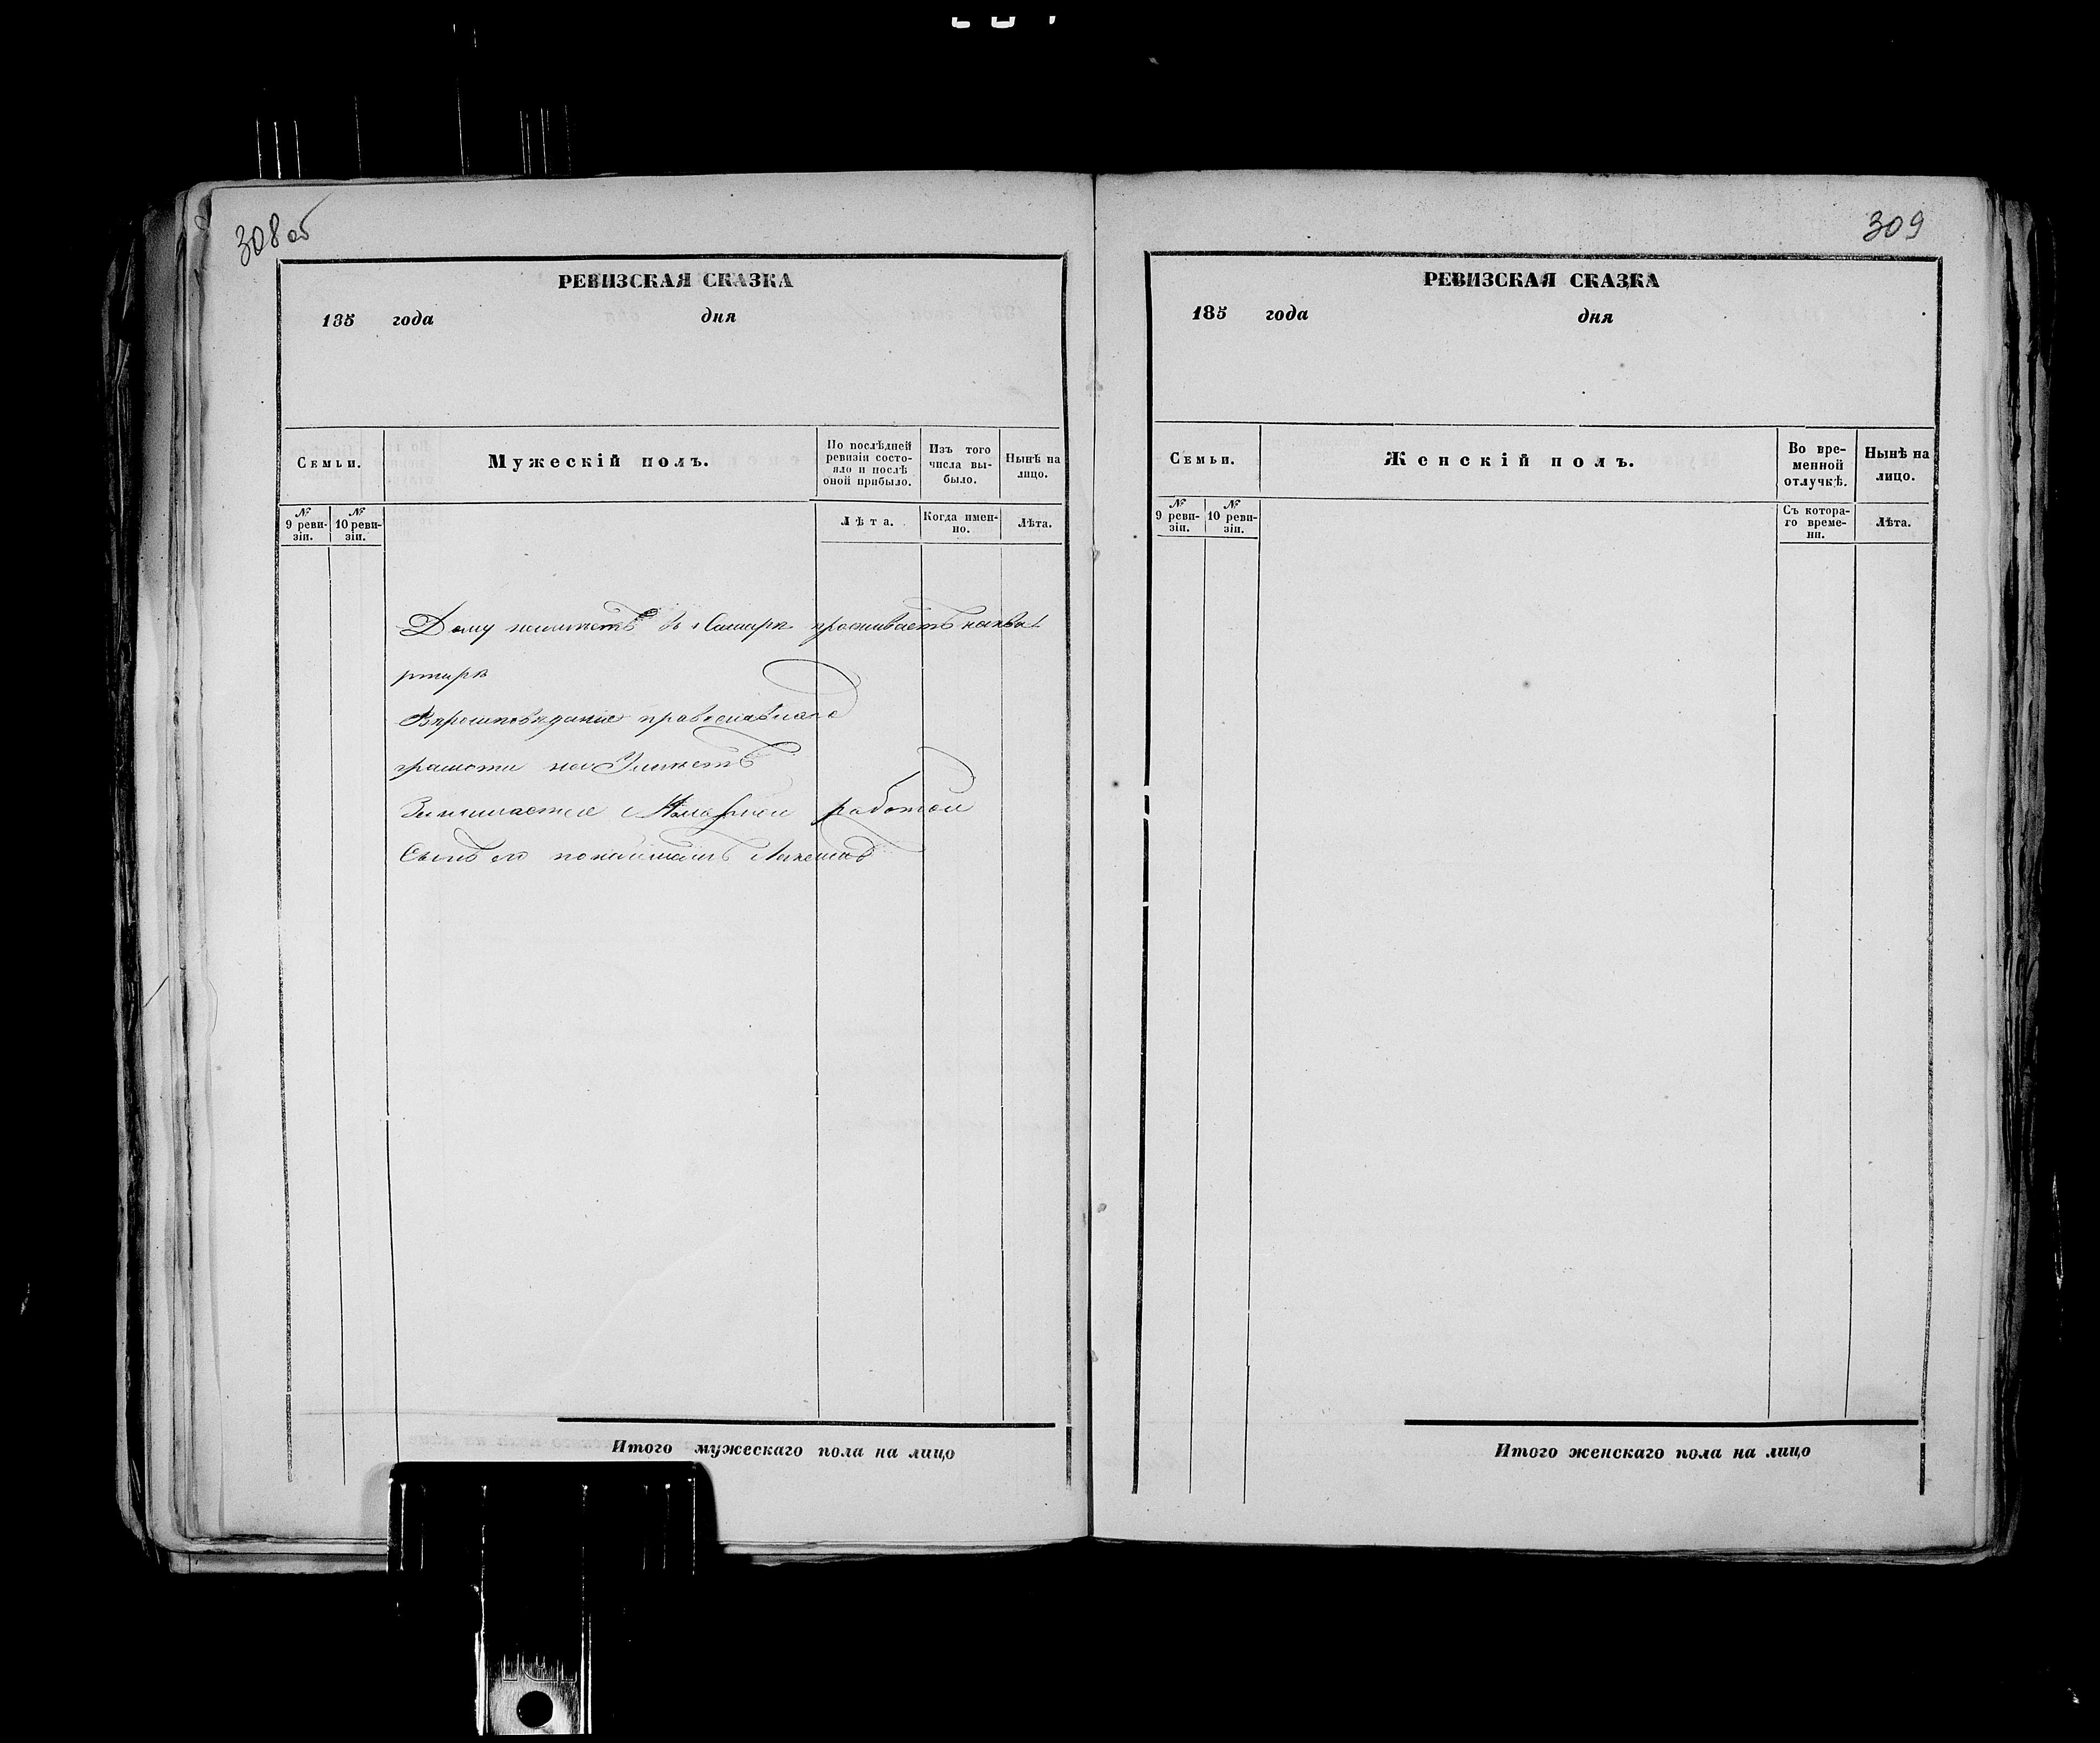 308 об
РЕВИЗСКАЯ СКАЗКА
185 года дня
Семьи.
Мужескій полъ.
По послѣдней ревизіи состо-
яло и послѣ
оной прибыло.
Изъ того
числа вы-
было.
Нынѣ на
лицо.
№
9 реви-
зіи.
№
10 реви-
зіи.
Лѣта.
Когда имен-
но.
Лѣта.
Дому неимѣетъ в Самарѣ проживаетъ наква
ртирѣ
Вѣроисповѣданія православнаго
грамоти не Умѣетъ
Занимается работой
Сынъ его
Итого мужескаго пола на лицо
309
РЕВИЗСКАЯ СКАЗКА
185 года дня
Семьи.
Женскій полъ.
Во вре-
менной
отлучкѣ.
Нынѣ на
лицо.
№
9 реви-
зіи.
№
10 реви-
зіи.
Съ котора-
го време-
ни.
Лѣта.
Итого женскаго пола на лицо